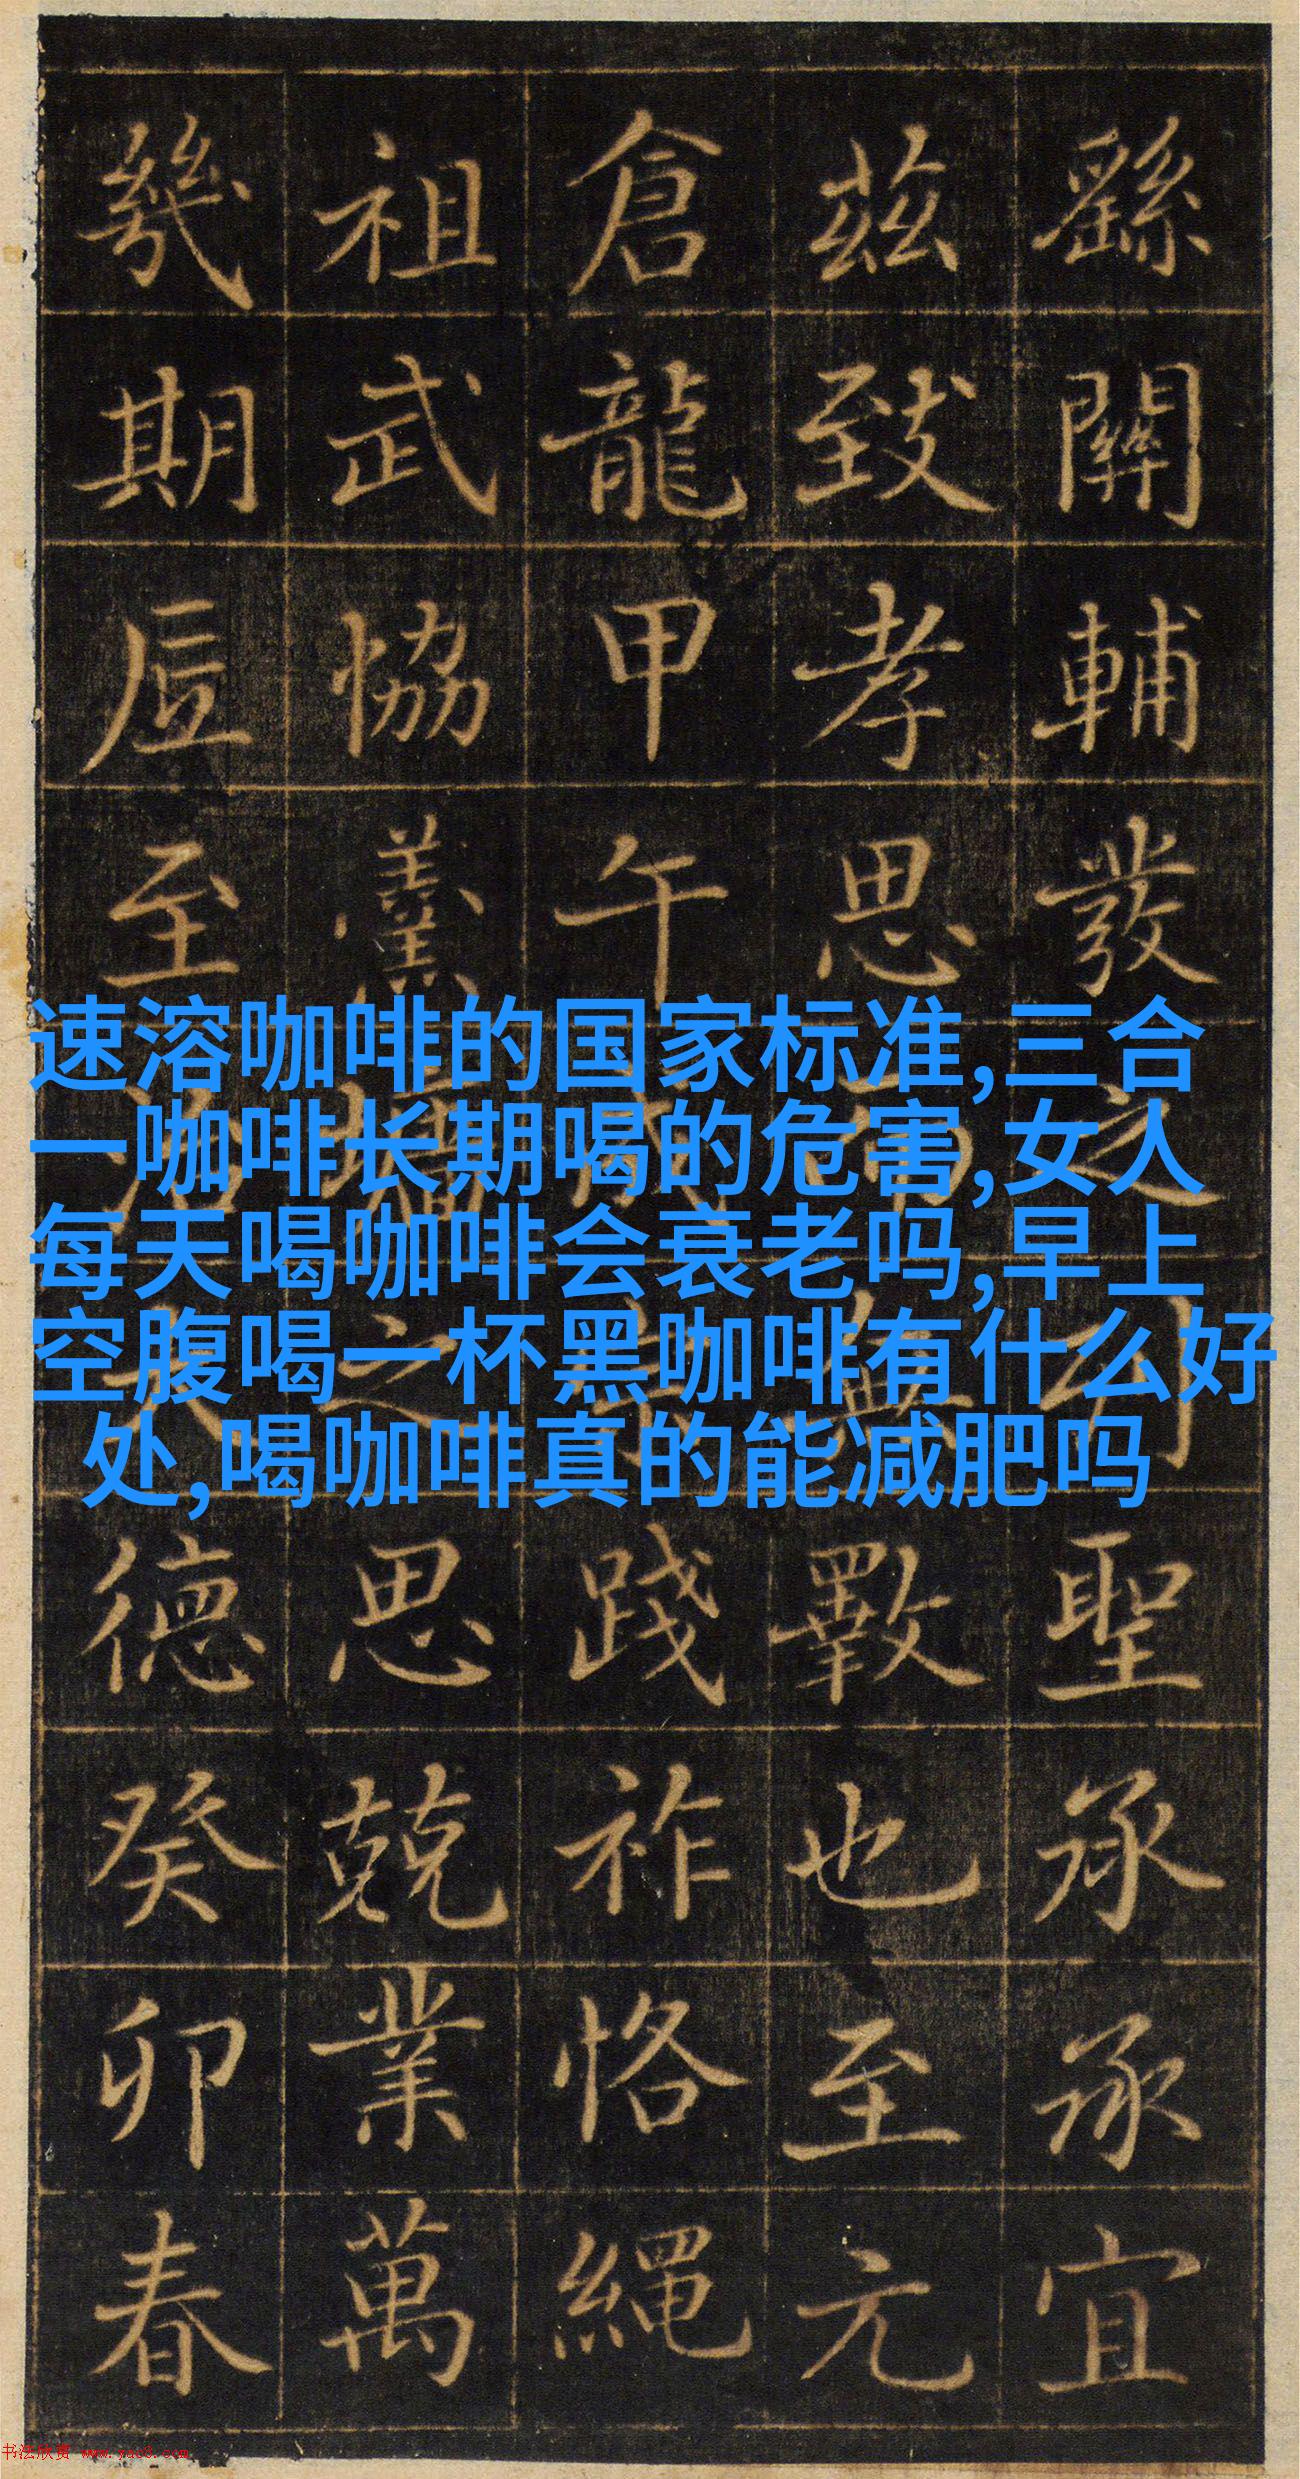 繇關輔發之聖承宜
茲致孝思而無斁也至元
倉龍甲午成宗踐祚恪繩
祖武協羹牆之思兢業萬
幾期底至治大德癸卯春
速溶咖啡的国家标准,三合
一咖啡长期喝的危害,女人
每天喝咖啡会衰老吗,早上
空腹喝一杯黑咖啡有什么好
处,喝咖啡真的能减肥吗
书法欣赏 www.yac8.com